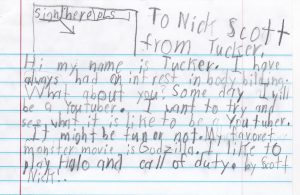 sign here pls
To Nick Scott
from Tucker,
Hi my name is Tucker. I have
always had an intrest in body bilding.
What about you? Some day I will
be a Youtuber. I want to try and
see what it is like to be a Youtuber.
It might be fun or not. My favoret
monster movie is Godzilla. I like to
play Halo and call of duty. by Scott
Nick!.